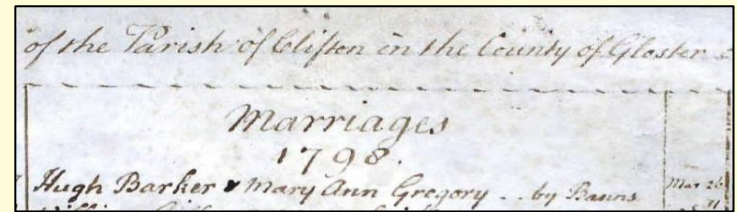 of the Parish of Clifton in the County of Gloster
Marriages
1798.
Hugh Barker & Mary Ann Gregory . . by Banns Mar 26